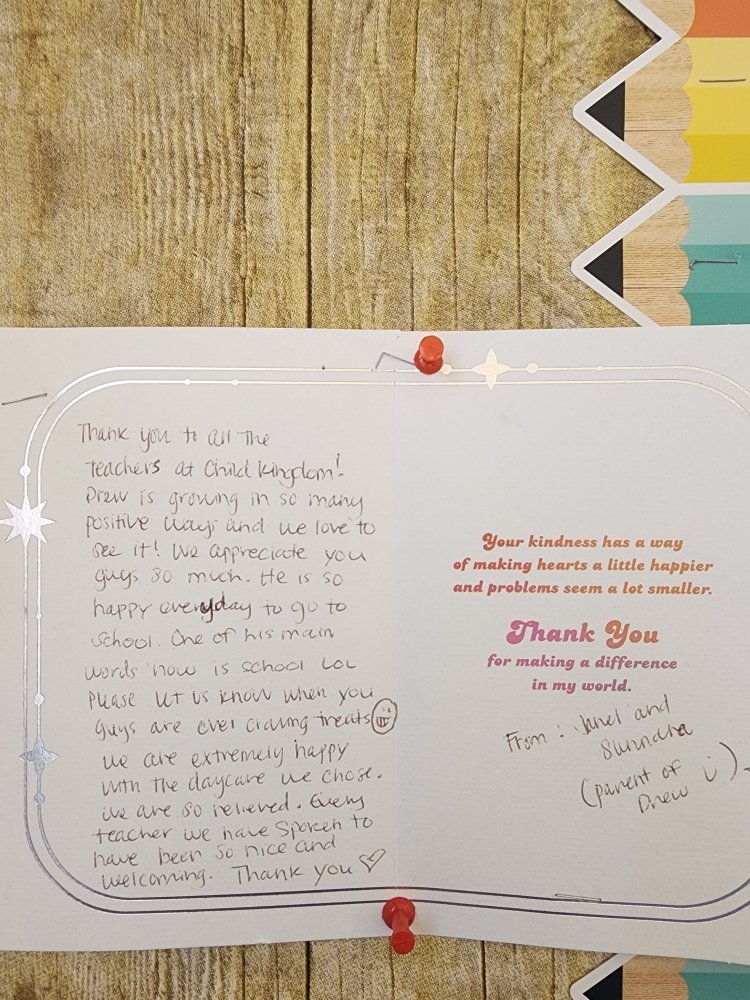 Thank you to all the
teachers at Child Kingdom!
Drew is growing in so many
positive ways and we love to
see it! We appreciate you
guys so much. He is so
happy everyday to go to
school. One of his main
words now is school LOL
Please let us know when you
guys are ever craving treats
we are extremely happy
with the daycare we chose.
we are so relieved. Every
teacher we have spoken to
have been so nice and
welcoming. Thank you ♡
Your kindness has a way
of making hearts a little happier
and problems seem a lot smaller.
Thank You
for making a difference
in my world.
From: Janel and
(parent of
Drew